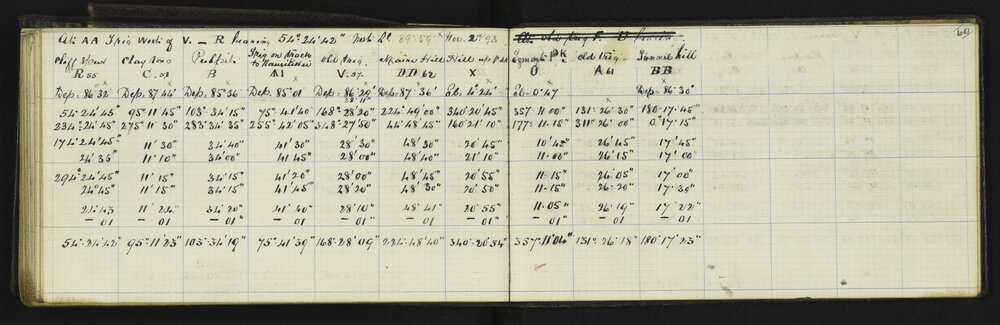 At AA Trig West of V. – R bearing 54° 24' 42" Nov. 2nd 93 60
Clayton's old trig. old trig. Tunnel hill
R 55 C. 51 B A1 V. 27. DD 62 X O A 61 BB
Dep. 86 32 Dep. 87 44' Dep. 85 36 Dep. 85 01 Dep. 86 29' Dep. 87 36' El. 4° 24' El. 0° 47 Dep. 86 30'
54° 24' 45" 95° 11' 45" 103° 34' 15" 75° 41' 40" 168° 28' 20" 224° 49' 00" 340° 20' 45" 357° 11' 00" 131° 26' 30" 180° 17' 45"
234° 24' 45" 275° 11' 30" 283° 34' 35" 255° 42' 05" 348° 27' 50" 44° 48' 45" 160° 21' 10" 177° 11' 15" 311° 26' 00" 0° 17' 15"
174° 24' 45" 11' 30" 34' 40" 41' 30" 28' 30" 48' 30" 20' 45" 10' 45" 26' 45" 17' 45"
24' 35" 11' 10" 34' 00" 41' 45" 28' 00" 48' 40" 21' 10" 11' 00" 26' 15" 17' 00"
294° 24' 45" 11' 15" 34' 15" 41' 20" 28' 00" 48' 45" 20' 55" 11' 15" 26' 05" 17' 00"
24' 45" 11' 15" 34' 15" 41' 45" 28' 20" 48' 30" 20' 50" 11' 15" 26' 20" 17' 30"
24' 43 11' 24" 34' 20" 41' 40" 28' 10" 48' 41" 20' 55" 11' 05" 26' 19" 17' 22"
– 01 – 01 – 01" – 01 – 01" – 01 – 01 – 01" – 01 – 01"
54° 24' 42" 95° 11' 23" 103° 34' 19" 75° 41' 39" 168° 28' 09" 224° 48' 40" 340° 20' 54" 357° 11' 04" 131° 26' 18" 180° 17' 23"